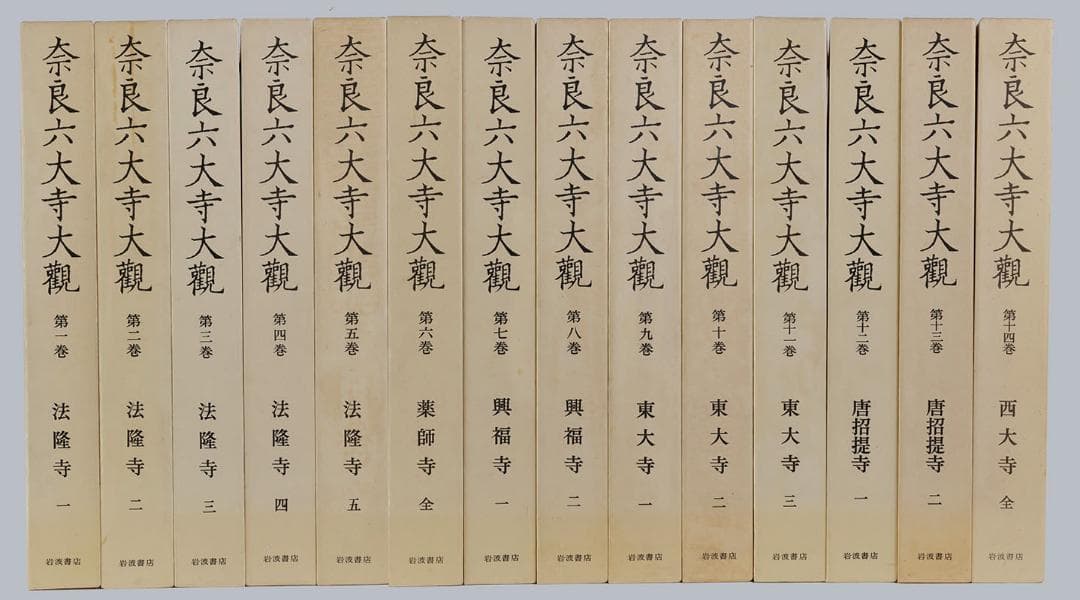 奈良六大寺大觀
第一巻
法隆寺 一
岩波書店
奈良六大寺大觀
第二巻
法隆寺 二
岩波書店
奈良六大寺大觀
第三巻
法隆寺 三
岩波書店
奈良六大寺大觀
第四巻
法隆寺 四
岩波書店
奈良六大寺大觀
第五巻
法隆寺 五
岩波書店
奈良六大寺大觀
第六巻
薬師寺 全
岩波書店
奈良六大寺大觀
第七巻
興福寺 一
岩波書店
奈良六大寺大觀
第八巻
興福寺 二
岩波書店
奈良六大寺大觀
第九巻
東大寺 一
岩波書店
奈良六大寺大觀
第十巻
東大寺 二
岩波書店
奈良六大寺大觀
第十一巻
東大寺 三
岩波書店
奈良六大寺大觀
第十二巻
唐招提寺 一
岩波書店
奈良六大寺大觀
第十三巻
唐招提寺 二
岩波書店
奈良六大寺大觀
第十四巻
西大寺 全
岩波書店